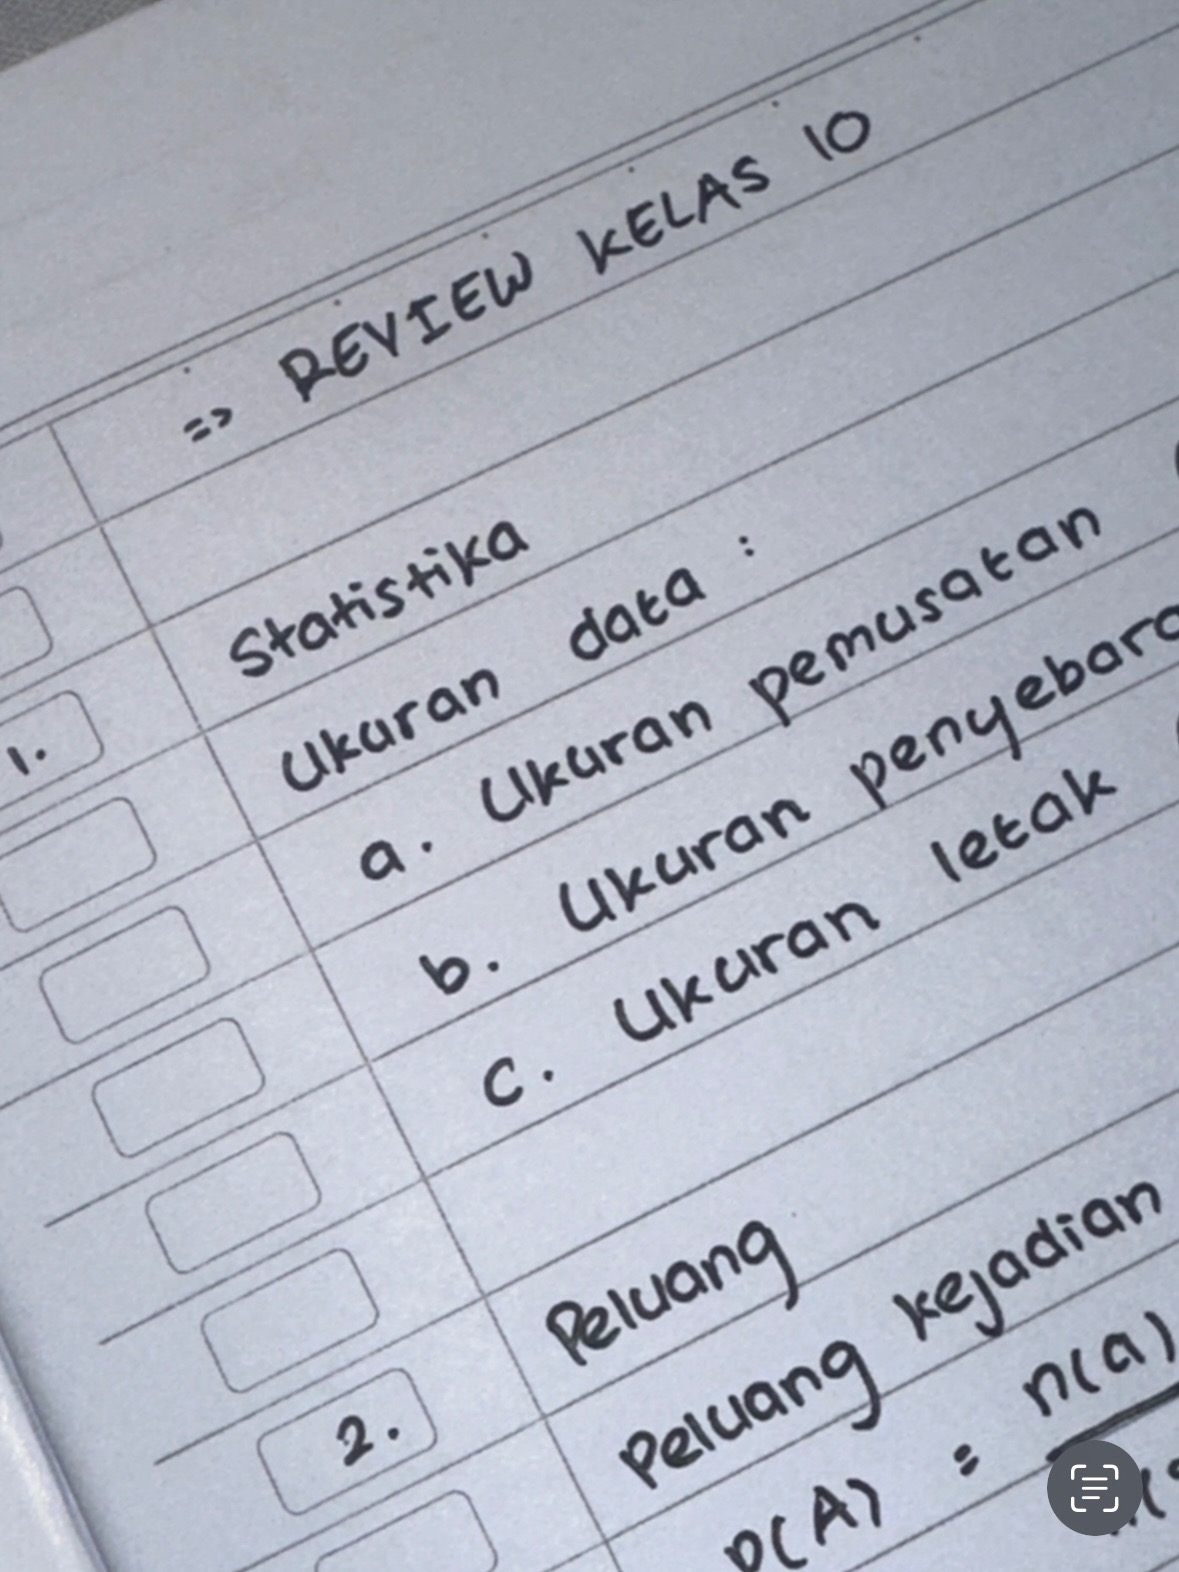 => REVIEW KELAS 10
1. Statistika
Ukuran data :
a. Ukuran pemusatan
b. Ukuran
c. Ukuran letak
2. Peluang
Peluang kejadian
P(A) = n(a)